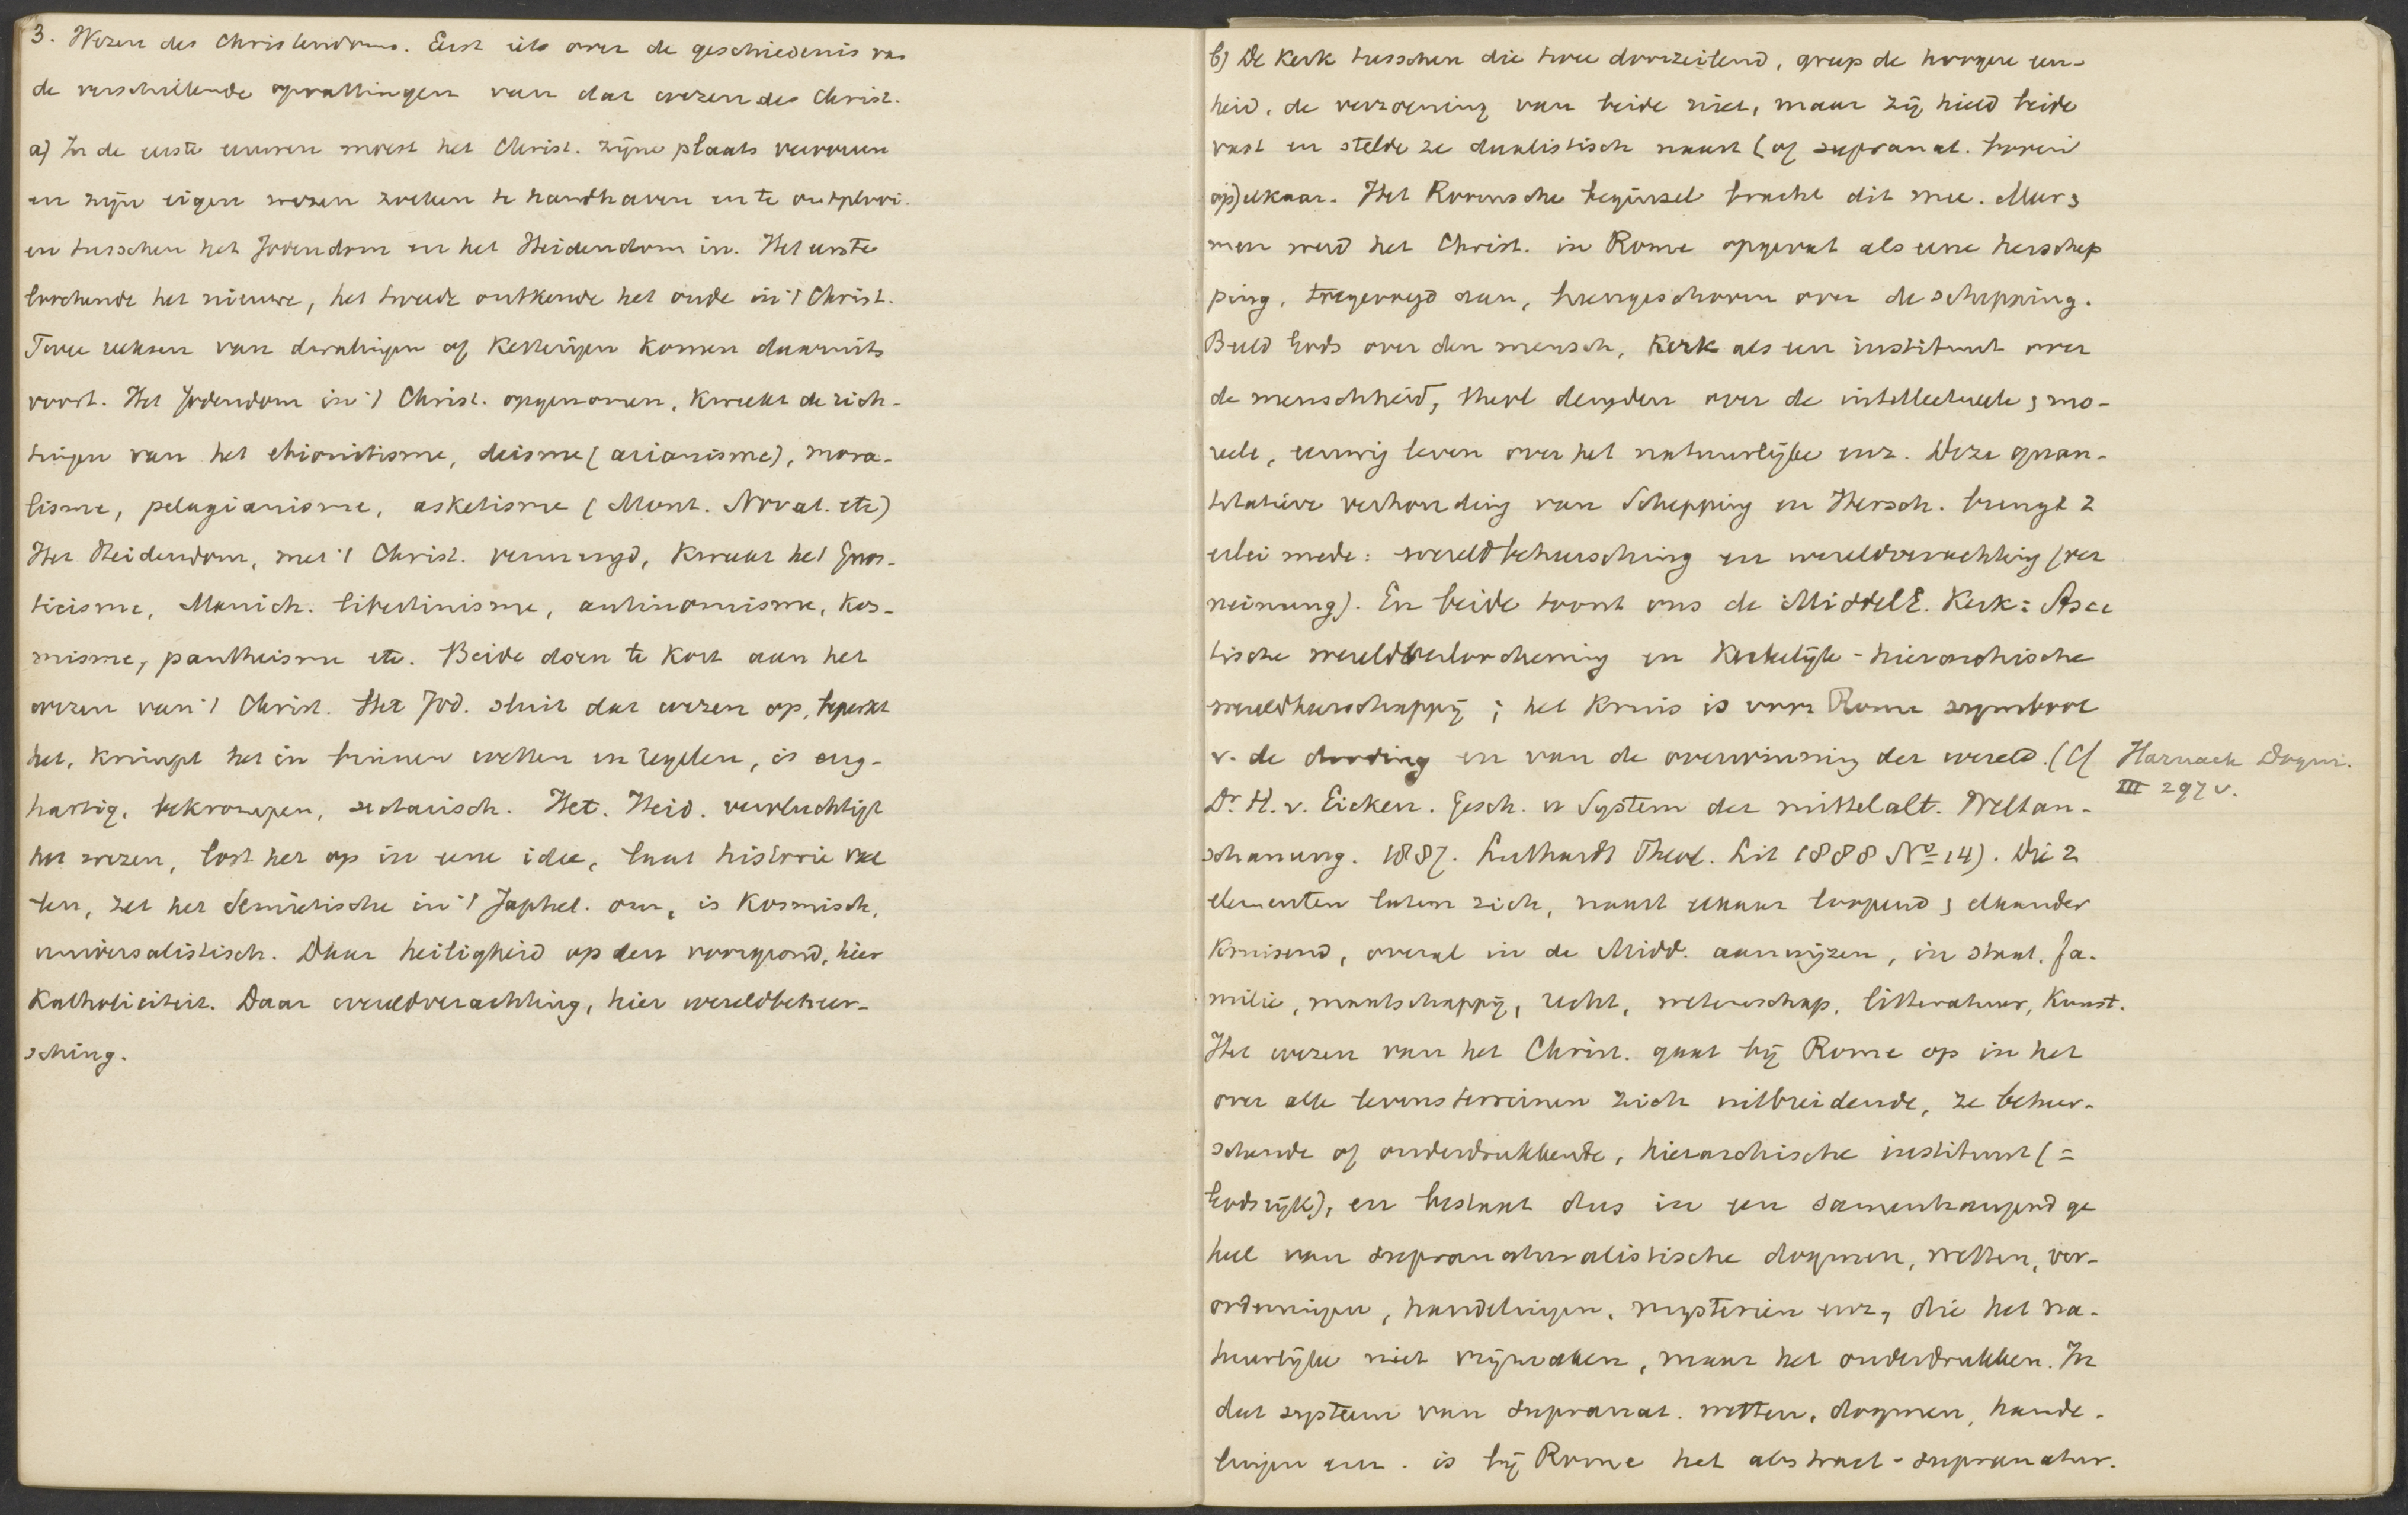 3. Wezen des Christendoms. Eerst iets over de geschiedenis van
de verschillende opvattingen van dat wezen des Christ.
a) In de eerste eeuwen moest het Christ. zijne plaats veroveren
en zijn eigen wezen zoeken te handhaven en te ontplooi-
en tusschen het Jodendom en het Heidendom in. Het eerste
loochende het nieuwe, het tweede ontkende het oude in 't Christ.
Twee reeksen van dwalingen of ketterijen komen daaruit
voort. Het Jodendom in 't Christ. opgenomen, kweekt de rich-
tingen van het ebionitisme, deisme (arianisme), mora-
lisme, pelagianisme, asketisme (Mont. Novat. etc)
Het Heidendom, met 't Christ. vermengd, kweekt het gnos-
ticisme, Manich. libertinisme, antinomisme, kos-
misme, pantheisme etc. Beide doen te kort aan het
wezen van 't Christ. Het Jod. sluit dat wezen op, beperkt
het, knijpt het in binnen wetten en regelen, is eng-
hartig, bekrompen, sectarisch. Het Heid. vervluchtigt
het wezen, lost het op in eene idee, laat historie val
len, zet het Semietische in 't Japhet. om, is kosmisch,
universalistisch. Daar heiligheid op den voorgrond, hier
Katholiciteit. Daar wereldverachting, hier wereldbeheer-
sching.
b) De Kerk tusschen die twee doorzeilend, greep de hoogere een-
heid, de verzoening van beide niet, maar zij hield beide
vast en stelde ze dualistisch naast (of supranat. boven
op) elkaar. Het Roomsche beginsel bracht dit mee. Meer &
meer werd het Christ. in Rome opgevat als eene herschep
ping, toegevoegd aan, heengeschoven over de schepping.
Beeld Gods over den mensch, Kerk als een instituut over
de menschheid, theol deugden over de intellectueele & mo-
reele, eeuwig leven over het natuurlijke enz. Deze quan-
titatieve verhouding van Schepping en Hersch. brengt 2
erlei mede: wereldbeheersching en wereldverachting (ver
neinung). En beide toont ons de MiddelE. Kerk: Asce
tische wereldverloochening en Kerkelijk-hierarchische
wereldheerschappij; het kruis is voor Rome symbool
v. de dooding en van de overwinning der wereld. (Cf Harnack Dogm.
III 297 v.
Dr H. v. Eicken. Gesch. u System der mittelalt. Weltan-
schauung. 1887. Luthardt Theol. Lit 1888 No 14). Die 2
elementen laten zich, naast elkaar loopend & elkander
kruisend, overal in de Midd. aanwijzen, in staat, fa-
milie, maatschappij, recht, wetenschap, litteratuur, kunst.
Het wezen van het Christ. gaat bij Rome op in het
over alle levensterreinen zich uitbreidende, ze beheer-
schende of onderdrukkende, hierarchische instituut (=
Godsrijk), en bestaat dus in een samenhangend ge
heel van supranaturalistische dogmen, wetten, ver-
ordeningen, handelingen, mysterien enz, die het na-
tuurlijke niet vrijmaken, maar het onderdrukken. In
dat systeem van supranat. wetten, dogmen, hande-
lingen enz. is bij Rome het abstract-supranatur.